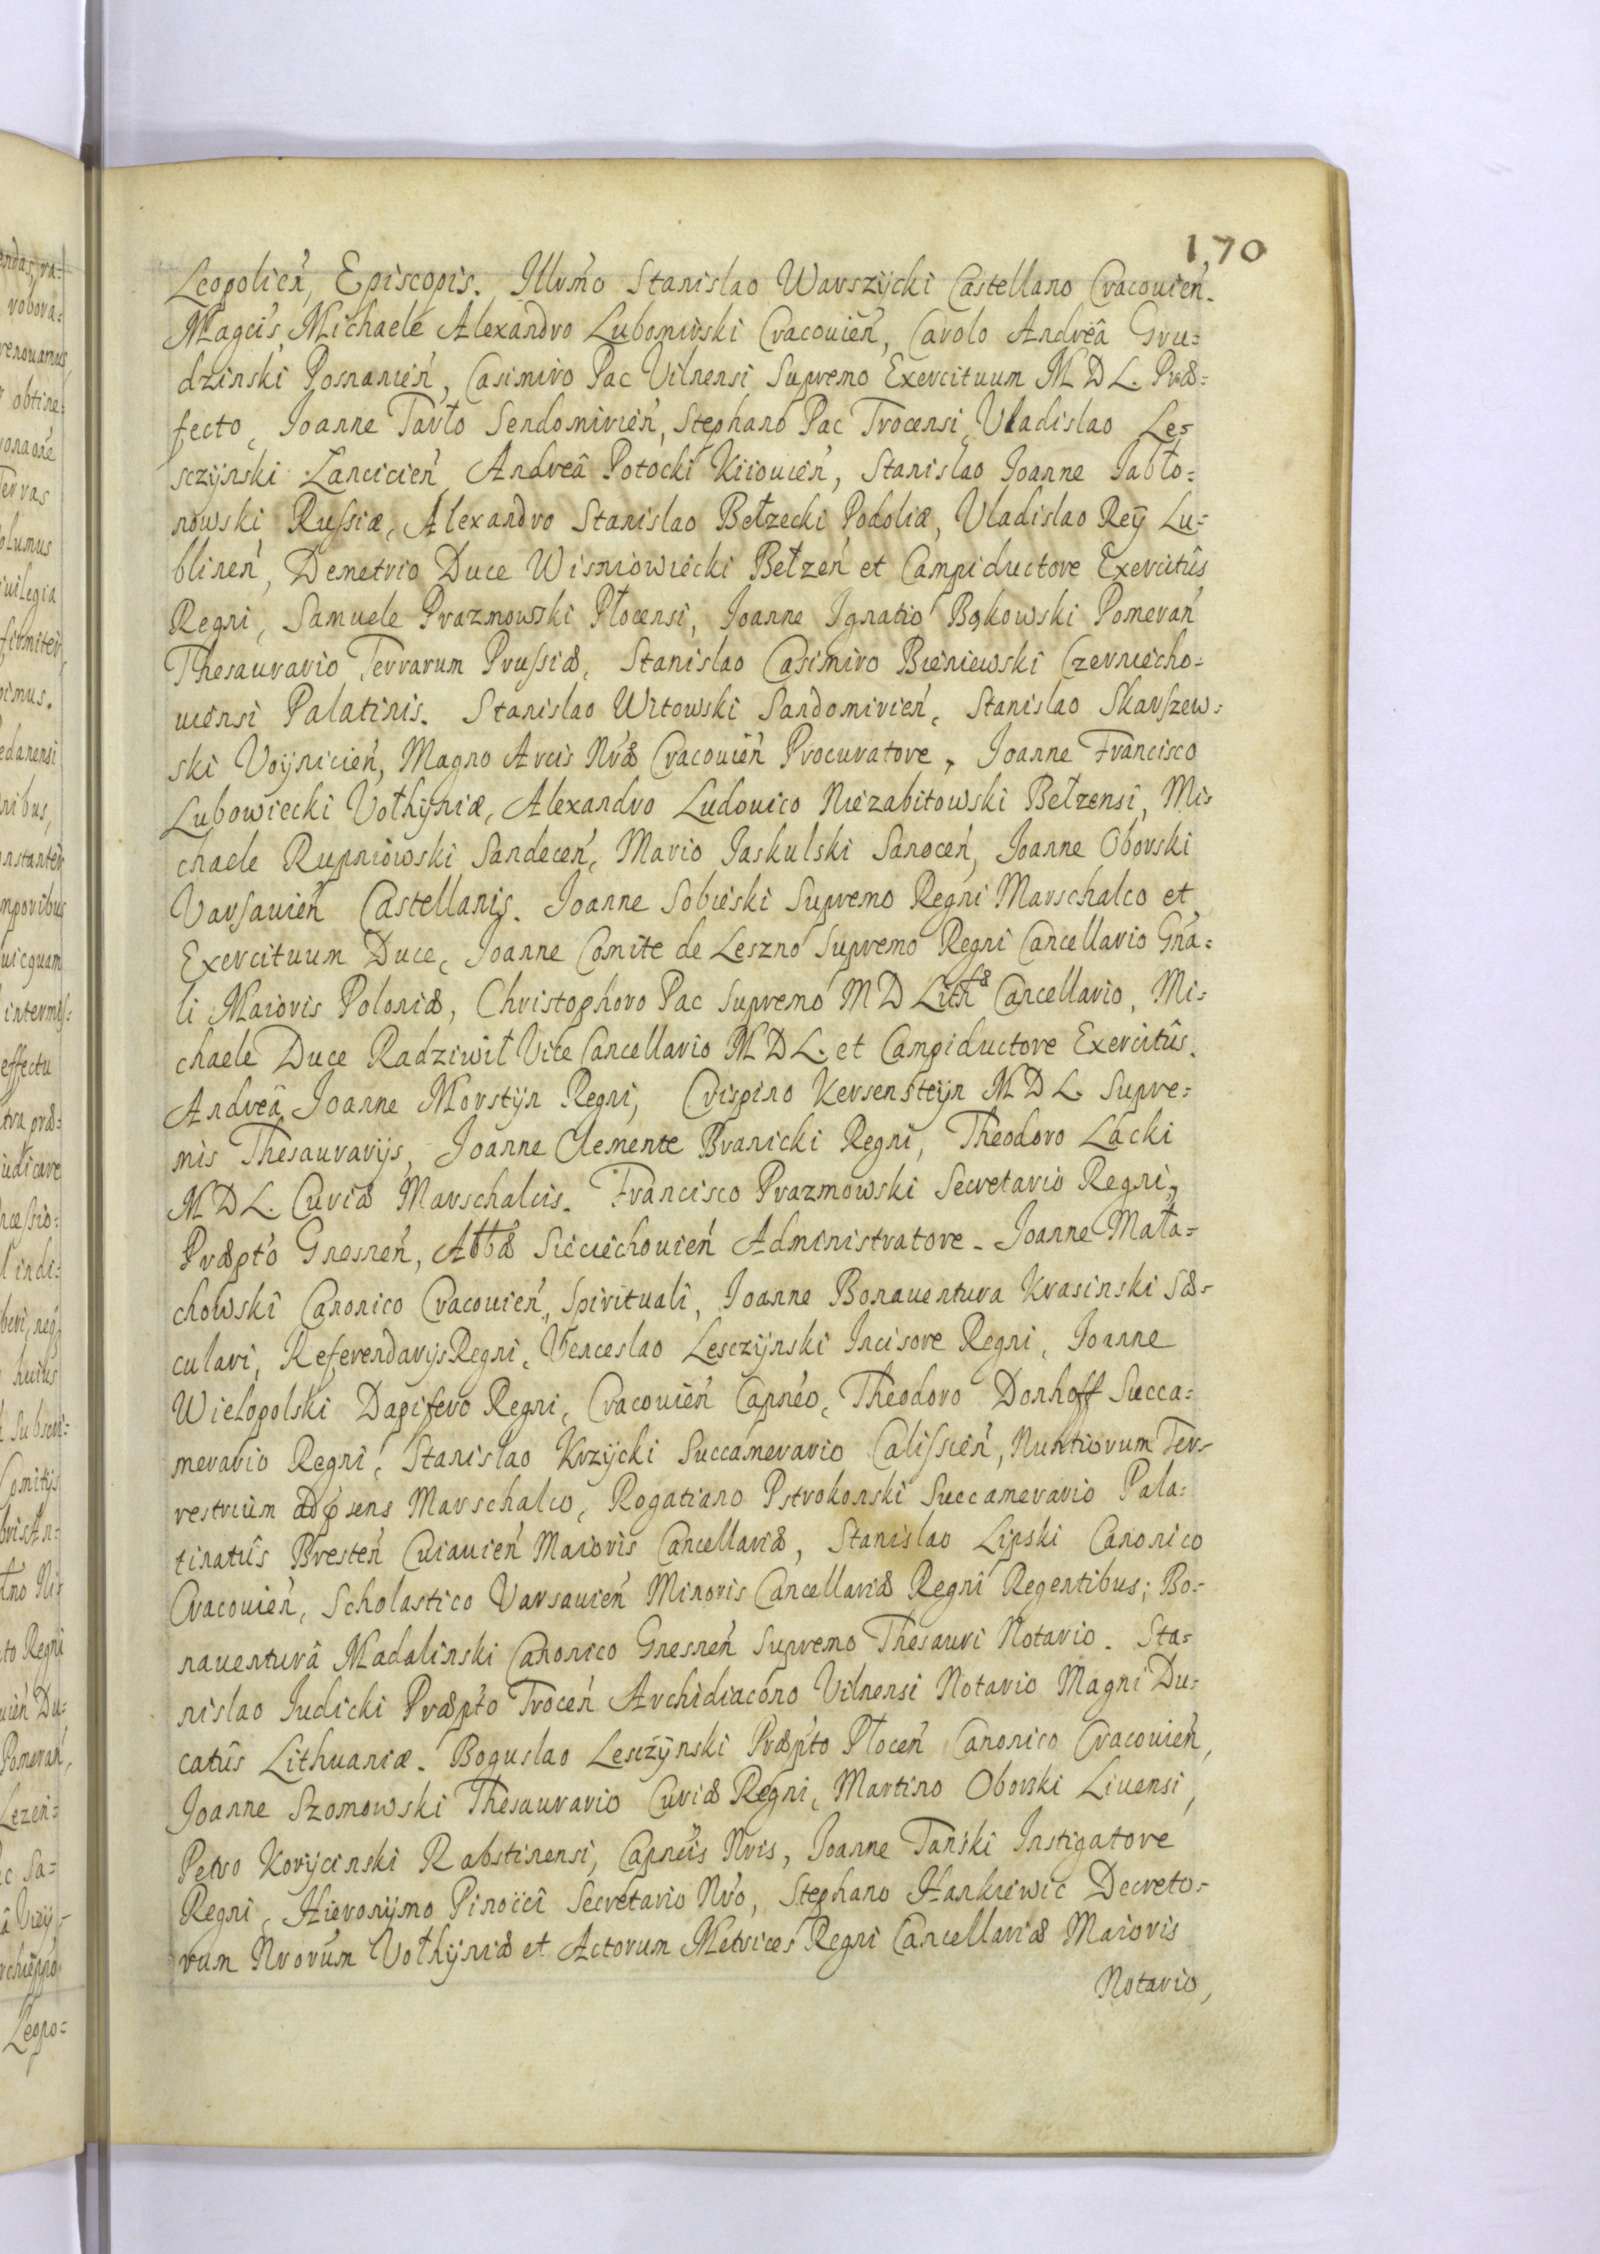 170
Leopolień, Episcopis. Illvmo Stanislao Warszÿcki Castellano Cracouień.
Magcis, Michaele Alexandro Lubomirski Cracouień, Carolo Andreâ Gru=
dzinski Posnanień, Casimiro Pac Vilnensi Supremo Exercituum M D L. Præ=
fecto, Joanne Tarło Sendomirień, Stephano Pac Trocensi, Vladislao Le=
sczÿnski Lancicień, Andreâ Potocki Kiiouień, Stanislao Joanne Jabło=
nowski Russiæ, Alexandro Stanislao Bełzecki Podoliæ, Vladislao Reÿ Lu=
blineń, Demetrio Duce Wisniowiecki Bełzeń et Campiductore Exercitûs
Regni, Samuele Prazmowski Płocensi, Joanne Ignatio Bąkowski Pomerań
Thesaurario Terrarum Prussiæ, Stanislao Casimiro Bieniewski Czerniecho=
uiensi Palatinis. Stanislao Witowski Sandomirień, Stanislao Skarszew=
ski Voÿnicień, Magno Arcis Nræ Cracouień Procuratore, Joanne Francisco
Lubowiecki Vołhÿniæ, Alexandro Ludouico Niezabitowski Bełzensi, Mi=
chaele Rupniowski Sandeceń, Mario Jaskulski Sanoceń, Joanne Oborski
Varsauień Castellanis. Joanne Sobieski Supremo Regni Marschalco et
Exercituum Duce, Joanne Comite de Leszno Supremo Regni Cancellario Gńa=
li Maioris Poloniæ, Christophoro Pac Supremo M D Lithæ Cancellario, Mi=
chaele Duce Radziwił Vice Cancellario M D L. et Campiductore Exercitûs.
Andreâ Joanne Morstÿn Regni, Crispino Kersensteÿn M D L. Supre=
mis Thesaurarÿs, Joanne Clemente Branicki Regni, Theodoro Lacki
M D L. Curiæ Marschalcis. Francisco Prazmowski Secretario Regni,
Præpto Gnesneń, Abbæ Sieciechouień Administratore. Joanne Mała=
chowski Canonico Cracouień, Spirituali, Joanne Bonauentura Krasinski Sæ=
culari, Referendarÿs Regni, Venceslao Lesczÿnski Incisore Regni, Joanne
Wielopolski Dapifero Regni, Cracouień Capneo, Theodoro Donhoff Succa=
merario Regni, Stanislao Krzÿcki Succamerario Calissień, Nuntiorum Ter=
restrium adpsens Marschalco, Rogatiano Pstrokonski Succamerario Pala=
tinatûs Bresteń Cuiauień Maioris Cancellariæ, Stanislao Lipski Canonico
Cracouień, Scholastico Varsauień Minoris Cancellariæ Regni Regentibus; Bo=
nauenturâ Madalinski Canonico Gnesneń Supremo Thesauri Notario. Sta=
nislao Judicki Præpto Troceń Archidiacono Vilnensi Notario Magni Du=
catûs Lithuaniæ. Boguslao Lesczÿnski Præpto Płoceń Canonico Cracouień,
Joanne Szomowski Thesaurario Curiæ Regni, Martino Oborski Liuensi,
Petro Korÿcinski Rabstinensi, Capneis Nris, Joanne Tański Instigatore
Regni, Hieronÿmo Pinocci Secretario Nro, Stephano Hankiewic Decreto=
rum Nrorum Vołhÿniæ et Actorum Metrices Regni Cancellariæ Maioris
Notario,